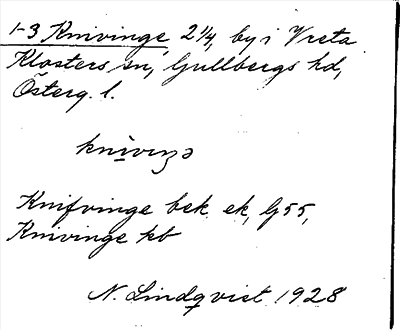 1-3 Knivinge, 2 1/4, by i Vreta
Klosters sn, Gullbergs hd,
Österg. l.
knìviŋə
Knifvinge bek. ek, G55,
Knivinge kb
N. Lindqvist 1928